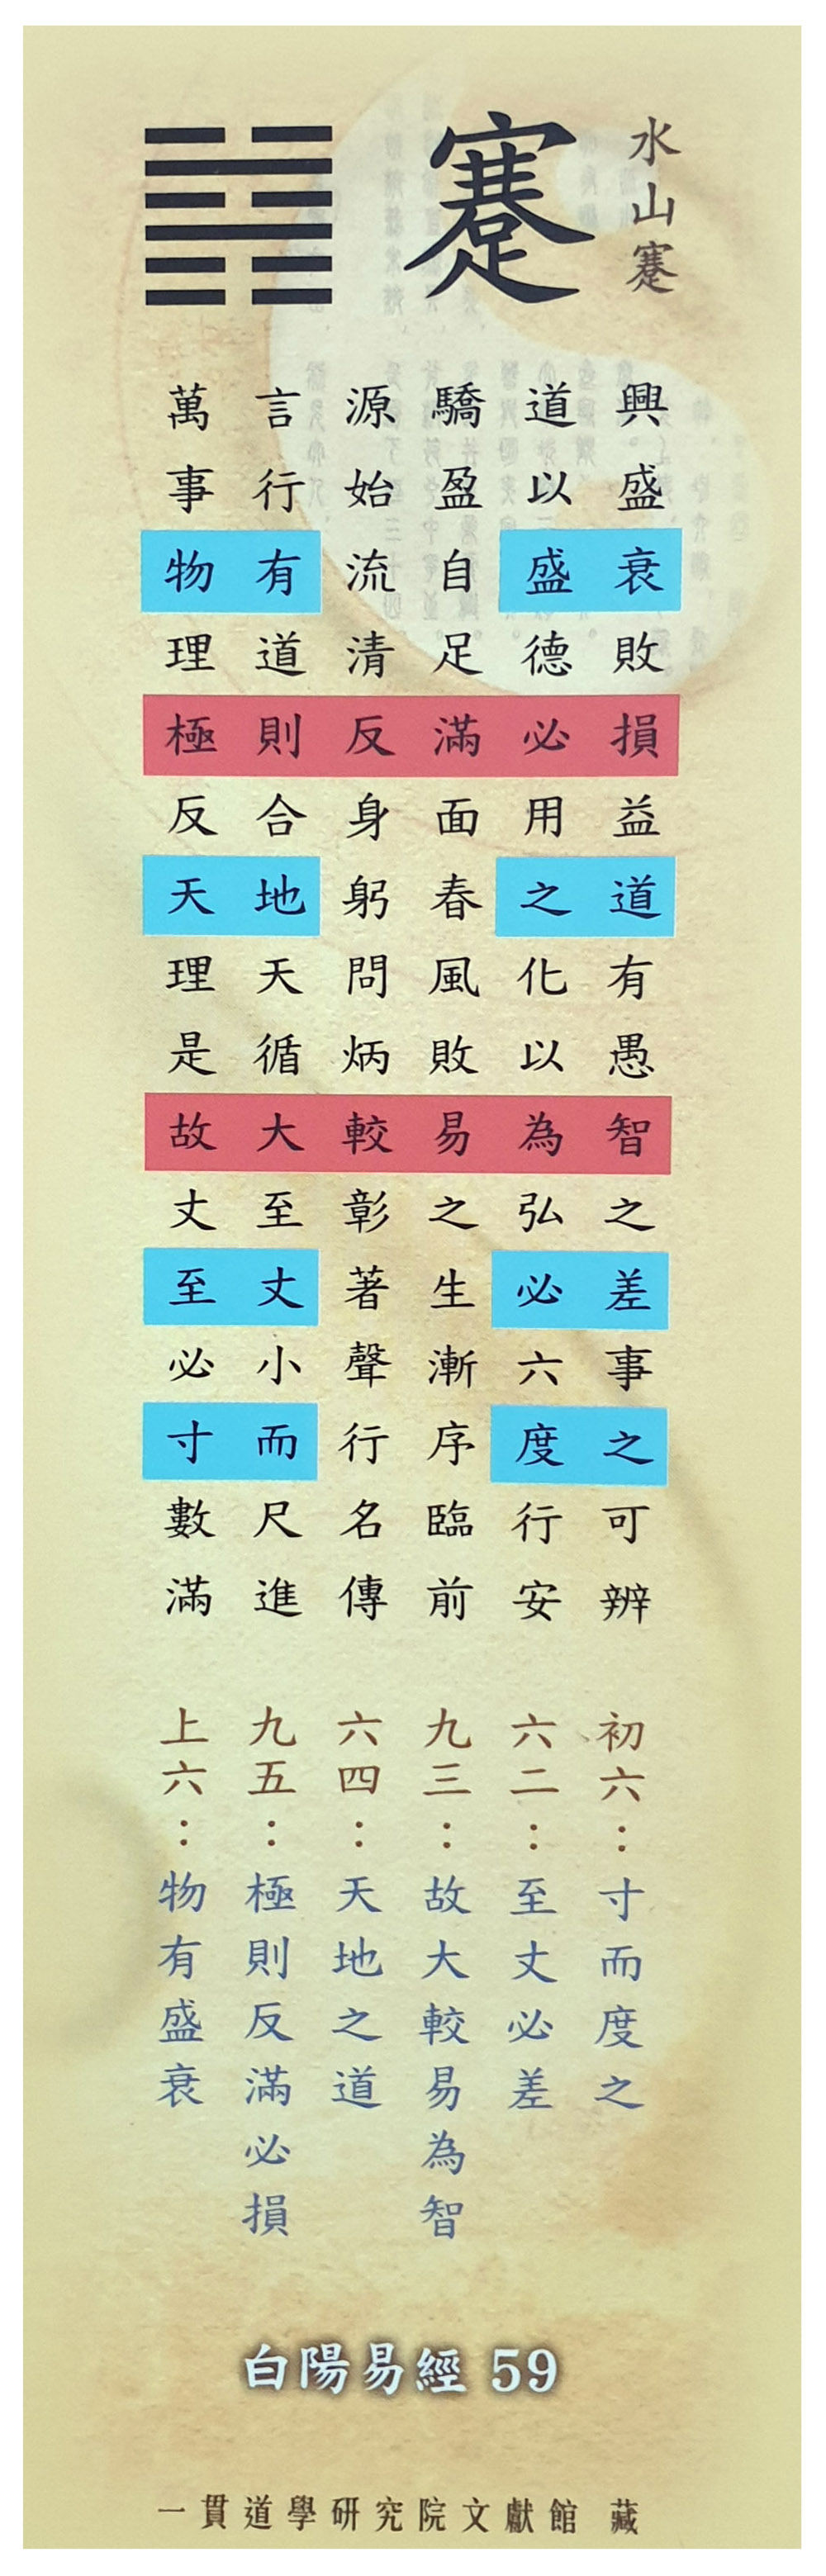 水山蹇
蹇
興盛衰敗損益道有愚智之差事之可辨
道以盛德必用之化以為弘必六度行安
驕盈自足滿面春風敗易之生漸序臨前
源始流清反身躬問炳較彰著聲行名傳
言行有道則合地天循大至丈小而尺進
萬事物理極反天理是故丈至必寸數滿
初六：寸而度之
六二：至丈必差
九三：故大較易為智
六四：天地之道
九五：極則反滿必損
上六：物有盛衰
白陽易經 59
一貫道學研究院文獻館 藏